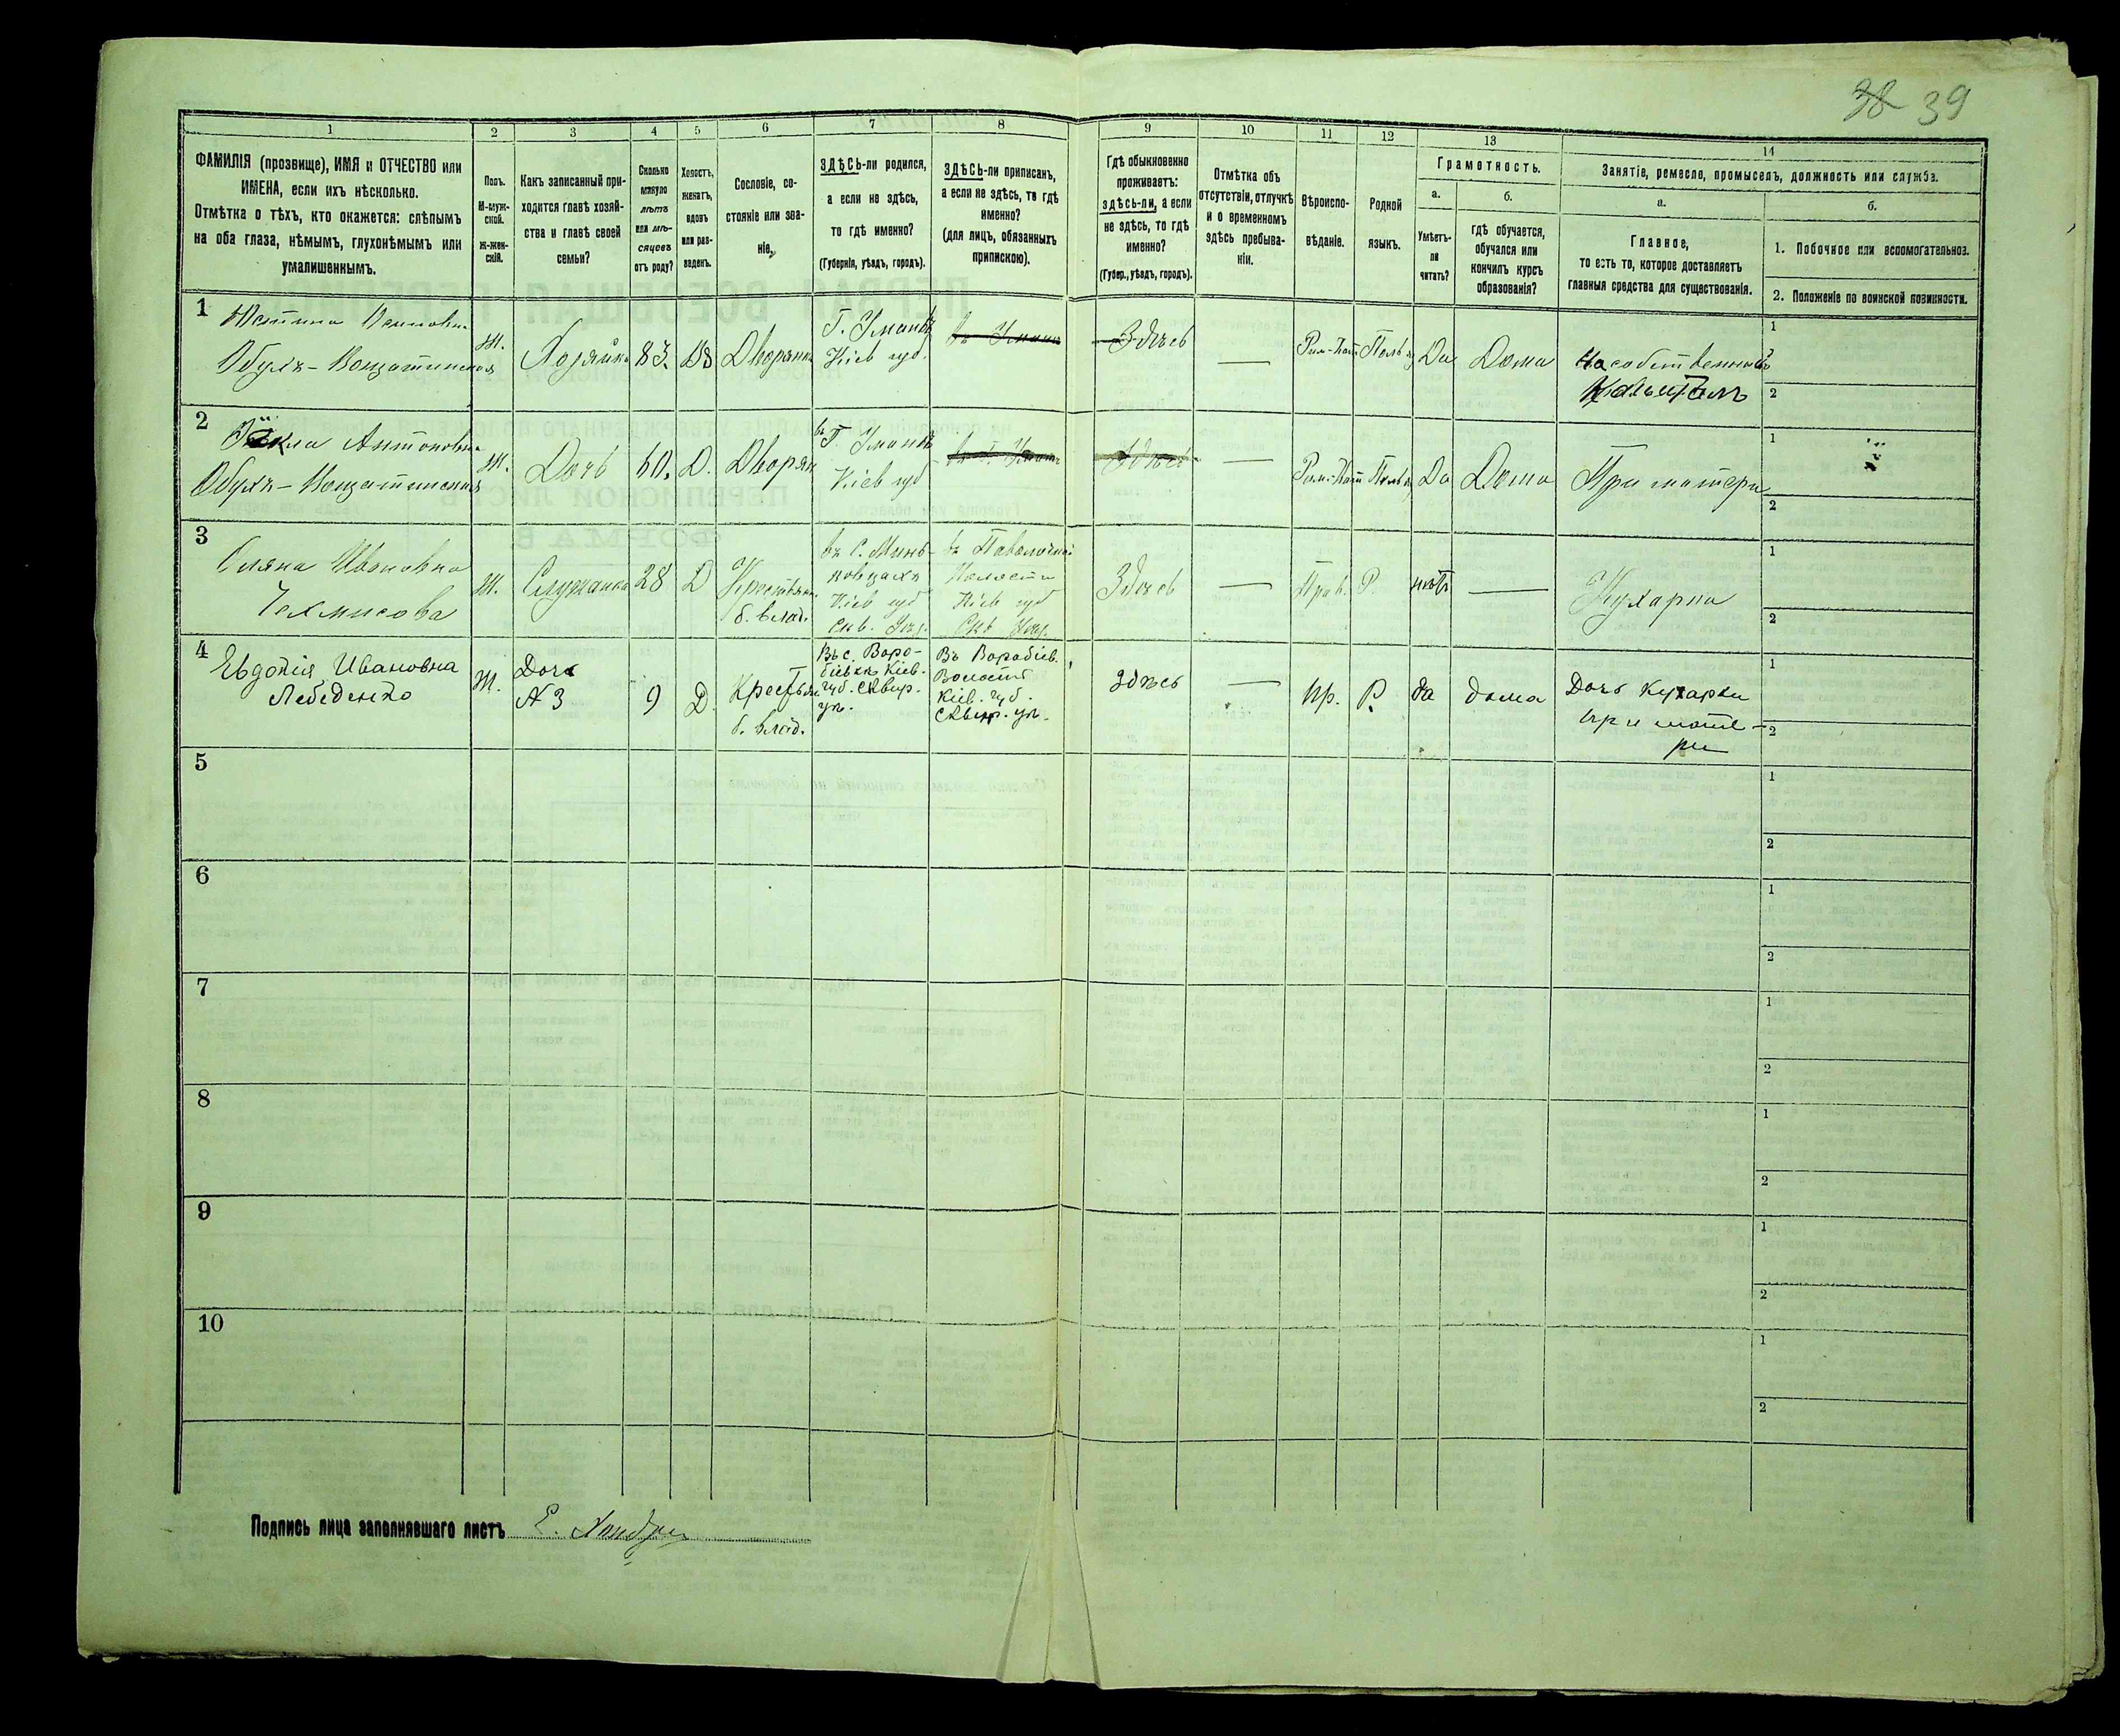 39
1
2
3
4
5
6
7
8
9
10
11
12
13
14
ФАМИЛІЯ (прозвище), ИМЯ и ОТЧЕСТВО или
ИМЕНА, если ихъ нѣсколько.
Отмѣтка о тѣхъ, кто окажется: слѣпымъ
на оба глаза, нѣмымъ, глухонѣмымъ или
умалишеннымъ.
Полъ.
М-муж-
ской.
Ж-жен-
скій.
Какъ записанный при-
ходится главѣ хозяй-
ства и главѣ своей
семьи?
Сколько
минуло
лѣтъ
или мѣ-
сяцевъ
отъ роду?
Холостъ,
женатъ,
вдовъ
или раз-
веденъ.
Сословіе, со-
стояніе или зва-
ніе.
ЗДѢСЬ-ли родился,
а если не здѣсь,
то гдѣ именно?
(Губернія, уѣздъ, городъ).
ЗДѢСЬ-ли приписанъ,
а если не здѣсь, то гдѣ
именно?
(для лицъ, обязанныхъ
припискою).
Гдѣ обыкновенно
проживаетъ:
здѣсь-ли, а если
не здѣсь, то гдѣ
именно?
(Губер., уѣздъ, городъ).
Отмѣтка объ
отсутствіи, отлучкѣ
и о временномъ
здѣсь пребыва-
ніи.
Вѣроиспо-
вѣданіе.
Родной
языкъ.
Грамотность.
а.
Умѣетъ-
ли
читать?
б.
гдѣ обучается,
обучался или
кончилъ курсъ
образованія?
Занятіе, ремесло, промыселъ, должность или служба.
а.
Главное,
то есть то, которое доставляетъ
главныя средства для существованія.
б.
1. Побочное или вспомогательное.
2. Положеніе по воинской повинности.
1
Обухъ-Вощатинская
Ж.
Хозяйка
83.
Дворянка
Г. Умань
Кіев губ.
Здѣсь
—
Рим-Кат
Да
Дома
На собственный
Капиталъ
1
2
2
Антоновна
Обухъ-Вощатинская
Ж.
Дочь
60.
Д.
Дворян
въ Г. Умань
Кіев губ
Здѣсь
—
Рим-Кат
Да
Дома
При матери
1
2
3
Ивановна
Ж.
Служанка
28
Д
Крестьян.
б. влад.
Кіев губ
Скв. Уѣз.
Волости
Кіев губ
Скв Уѣз.
Здѣсь
—
Прав.
Р.
нѣтъ
—
Кухарка
1
2
4
Евдокія Ивановна
Лебеденко
Ж.
Дочь
№ 3
9
Д.
Крестьян.
б. влад.
Въ с. Воро-
біевкѣ Кіев.
губ. Сквир.
уѣ.
Въ Воробіев.
Волости
Кіев. губ.
Сквир. уѣ.
здѣсь
—
пр.
Р.
да
дома
Дочь кухарки
при мате-
ри
1
2
5
1
2
6
1
2
7
1
2
8
1
2
9
1
2
10
1
2
Подпись лица заполнявшаго листъ